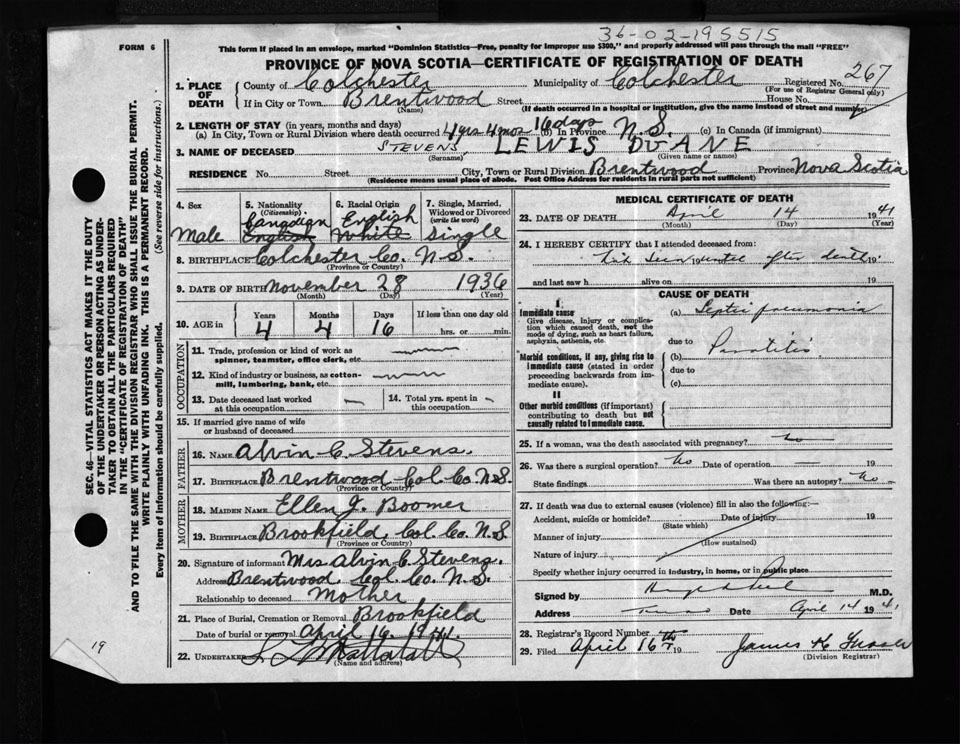 36-02-195515
FORM 6
This form if placed in an envelope, marked "Dominion Statistics—Free, penalty for improper use $300," and properly addressed will pass through the mail "FREE"
PROVINCE OF NOVA SCOTIA—CERTIFICATE OF REGISTRATION OF DEATH
SEC. 46—VITAL STATISTICS ACT MAKES IT THE DUTY
OF THE UNDERTAKER OR PERSON ACTING AS UNDER-
TAKER TO OBTAIN ALL THE PARTICULARS REQUIRED
IN THE "CERTIFICATE OF REGISTRATION OF DEATH"
AND TO FILE THE SAME WITH THE DIVISION REGISTRAR WHO SHALL ISSUE THE BURIAL PERMIT.
WRITE PLAINLY WITH UNFADING INK. THIS IS A PERMANENT RECORD.
Every item of Information should be carefully supplied. (See reverse side for instructions.)
19
1. PLACE OF DEATH
County of Colchester Municipality of Colchester Registered No. 267
(For use of Registrar General only)
If in City or Town Brentwood Street House No.
(Name) (If death occurred in a hospital or institution, give the name instead of street and number)
2. LENGTH OF STAY (in years, months and days)
(a) In City, Town or Rural Division where death occurred 4 yrs 4 mos 16 days (b) in Province N.S. (c) In Canada (if immigrant)
3. NAME OF DECEASED STEVENS, LEWIS DUANE
(Surname) (Given name or names)
RESIDENCE No. Street City, Town or Rural Division Brentwood Province Nova Scotia
(Residence means usual place of abode. Post Office Address for residents in rural parts not sufficient)
4. Sex Male
5. Nationality (Citizenship) Canadian English
6. Racial Origin English White
7. Single, Married, Widowed or Divorced (write the word) Single
8. BIRTHPLACE Colchester Co. N.S.
(Province or Country)
9. DATE OF BIRTH November 28 1936
(Month) (Day) (Year)
10. AGE in Years 4 Months 4 Days 16 If less than one day old hrs. or min.
OCCUPATION
11. Trade, profession or kind of work as
spinner, teamster, office clerk, etc.
12. Kind of industry or business, as cotton-
mill, lumbering, bank, etc.
13. Date deceased last worked at this occupation
14. Total yrs. spent in this occupation
15. If married give name of wife
or husband of deceased
FATHER
16. NAME Alvin C. Stevens
17. BIRTHPLACE Brentwood Col. Co. N.S.
(Province or Country)
MOTHER
18. MAIDEN NAME Ellen J. Boomer
19. BIRTHPLACE Brookfield, Col. Co. N.S
(Province or Country)
20. Signature of informant Mrs Alvin C. Stevens.
Address Brentwood. Col. Co. N.S.
Relationship to deceased Mother
21. Place of Burial, Cremation or Removal Brookfield
Date of burial or removal April 16, 1941.
22. UNDERTAKER
(Name and address)
MEDICAL CERTIFICATE OF DEATH
23. DATE OF DEATH April 14 1941
(Month) (Day) (Year)
24. I HEREBY CERTIFY that I attended deceased from:
19 until after death 19
and last saw h alive on 19
CAUSE OF DEATH
I
Immediate cause
Give disease, injury or complica-
tion which caused death, not the
mode of dying, such as heart failure,
asphyxia, asthenia, etc.
(a) Septic pneumonia
due to
Morbid conditions, if any, giving rise to
immediate cause (stated in order
proceeding backwards from im-
mediate cause).
(b) Parotitis
due to
(c)
II
Other morbid conditions (if important)
contributing to death but not
causally related to immediate cause.
25. If a woman, was the death associated with pregnancy? no
26. Was there a surgical operation? No Date of operation 19
State findings Was there an autopsy? No
27. If death was due to external causes (violence) fill in also the following:
Accident, suicide or homicide? Date of injury 19
(State which)
Manner of injury
(How sustained)
Nature of injury
Specify whether injury occurred in industry, in home, or in public place
Signed by M.D.
Address Date April 14 1941
28. Registrar's Record Number
29. Filed April 16th 19 James K
(Division Registrar)